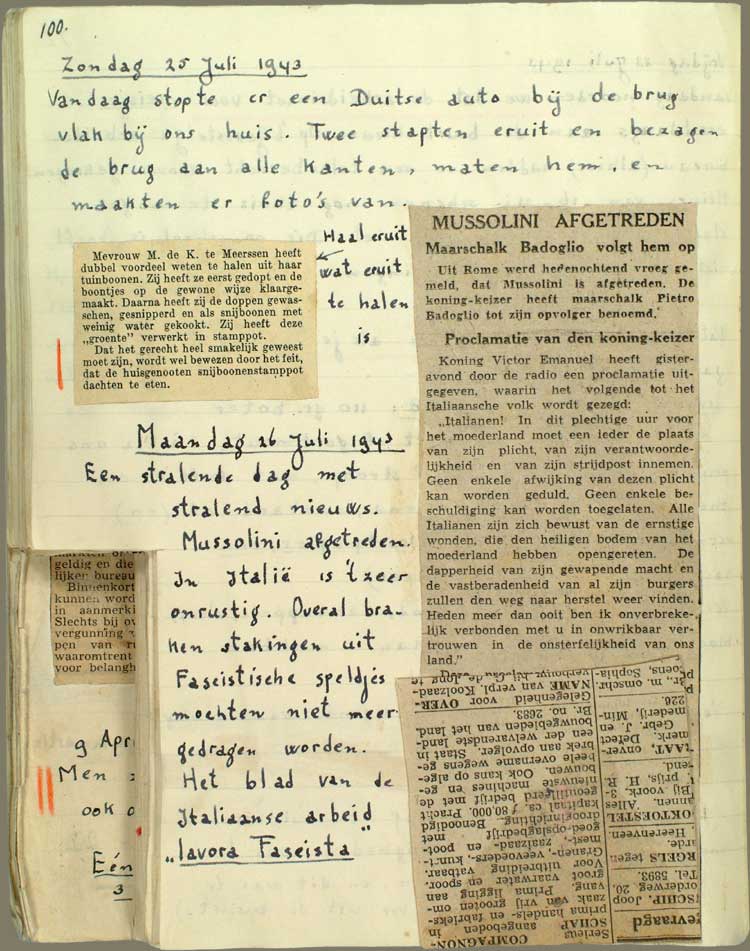 100.
Zondag 25 Juli 1943
Vandaag stopte er een Duitse auto bij de brug
vlak bij ons huis. Twee stapten eruit en bezagen
de brug aan alle kanten, maten hem, en
maakten er foto's van.
Haal eruit
wat eruit
te halen
is
Mevrouw M. de K. te Meerssen heeft
dubbel voordeel weten te halen uit haar
tuinboonen. Zij heeft ze eerst gedopt en de
boontjes op de gewone wijze klaarge-
maakt. Daarna heeft zij de doppen gewas-
schen, gesnipperd en als snijboonen met
weinig water gekookt. Zij heeft deze
„groente" verwerkt in stamppot.
Dat het gerecht heel smakelijk geweest
moet zijn, wordt wel bewezen door het feit,
dat de huisgenooten snijboonenstamppot
dachten te eten.
MUSSOLINI AFGETREDEN
Maarschalk Badoglio volgt hem op
Uit Rome werd hedenochtend vroeg ge-
meld, dat Mussolini is afgetreden. De
koning-keizer heeft maarschalk Pietro
Badoglio tot zijn opvolger benoemd.
Proclamatie van den koning-keizer
Koning Victor Emanuel heeft gister-
avond door de radio een proclamatie uit-
gegeven, waarin het volgende tot het
Italiaansche volk wordt gezegd:
„Italianen! In dit plechtige uur voor
het moederland moet een ieder de plaats
van zijn plicht, van zijn verantwoorde-
lijkheid en van zijn strijdpost innemen.
Geen enkele afwijking van dezen plicht
kan worden geduld. Geen enkele be-
schuldiging kan worden toegelaten. Alle
Italianen zijn zich bewust van de ernstige
wonden, die den heiligen bodem van het
moederland hebben opengereten. De
dapperheid van zijn gewapende macht en
de vastberadenheid van al zijn burgers
zullen den weg naar herstel weer vinden.
Heden meer dan ooit ben ik onverbreke-
lijk verbonden met u in onwrikbaar ver-
trouwen in de onsterfelijkheid van ons
land."
Maandag 26 Juli 1943
Een stralende dag met
stralend nieuws.
Mussolini afgetreden.
In Italië is 't zeer
onrustig. Overal bra-
ken stakingen uit
Fascistische speldjes
mochten niet meer
gedragen worden.
Het blad van de
Italiaanse arbeid
„lavora Faseista"
geldig en die
lijken bureau
Binnenkort
kunnen word
in aanmerki
Slechts bij ov
vergunning
pen van
waaromtrent
voor belangh
9 Apri
Men
ook
Eén
3
COMPAGNON-
SCHAP
Serieus
aangeboden in
prima handels- en fabrieks-
zaak van vrij grooten om-
vang. Prima ligging aan
groot vaarwater en spoor.
Voor uitbreiding vatbaar.
Granen-, veevoeders-, kunst-
mest-, zaaizaad- en poot-
goed-opslagbedrijf met
drooginrichting. Benoodigd
kapitaal ca. ƒ 80.000. Pracht
geoutilleerd bedrijf met de
nieuwste machines en ge-
bouwen. Ook kans op alge-
heele overname wegens ge-
brek aan opvolger. Staat in
een der welvarendste land-
bouwgebieden van het land.
Br. no. 2683.
Gelegenheid voor OVER-
NAME van verpl. Koolzaad-
gevraagd
SCHIP. Joop
orderweg 20.
Tel. 5893.
RGELS tegen
arde.
Heerenveen.
OKTOESTEL
annen. Alles
Bij voork. 3-
prijs, H. R.
end.
TAAT, onver-
merk. Defect
Gebr. J. en
mederij, Min-
226.
gr., m. omschr.
poens, Sophia-